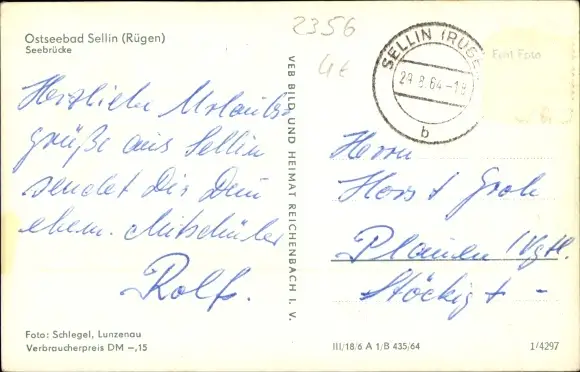 Ostseebad Sellin (Rügen)
Seebrücke
2356
4€
SELLIN (RÜGEN
29.8.64-18
b
Fehlt Foto
Herzliche Urlaubs-
grüße aus Sellin
sendet Dir Dein
ehem. Mitschüler
Rolf.
VEB BILD UND HEIMAT REICHENBACH I. V.
Herrn
Horst Groh
Plauen/Vgtl.
Stöckigt -
Foto: Schlegel, Lunzenau
Verbraucherpreis DM -,15
III/18/6 A 1/B 435/64
1/4297